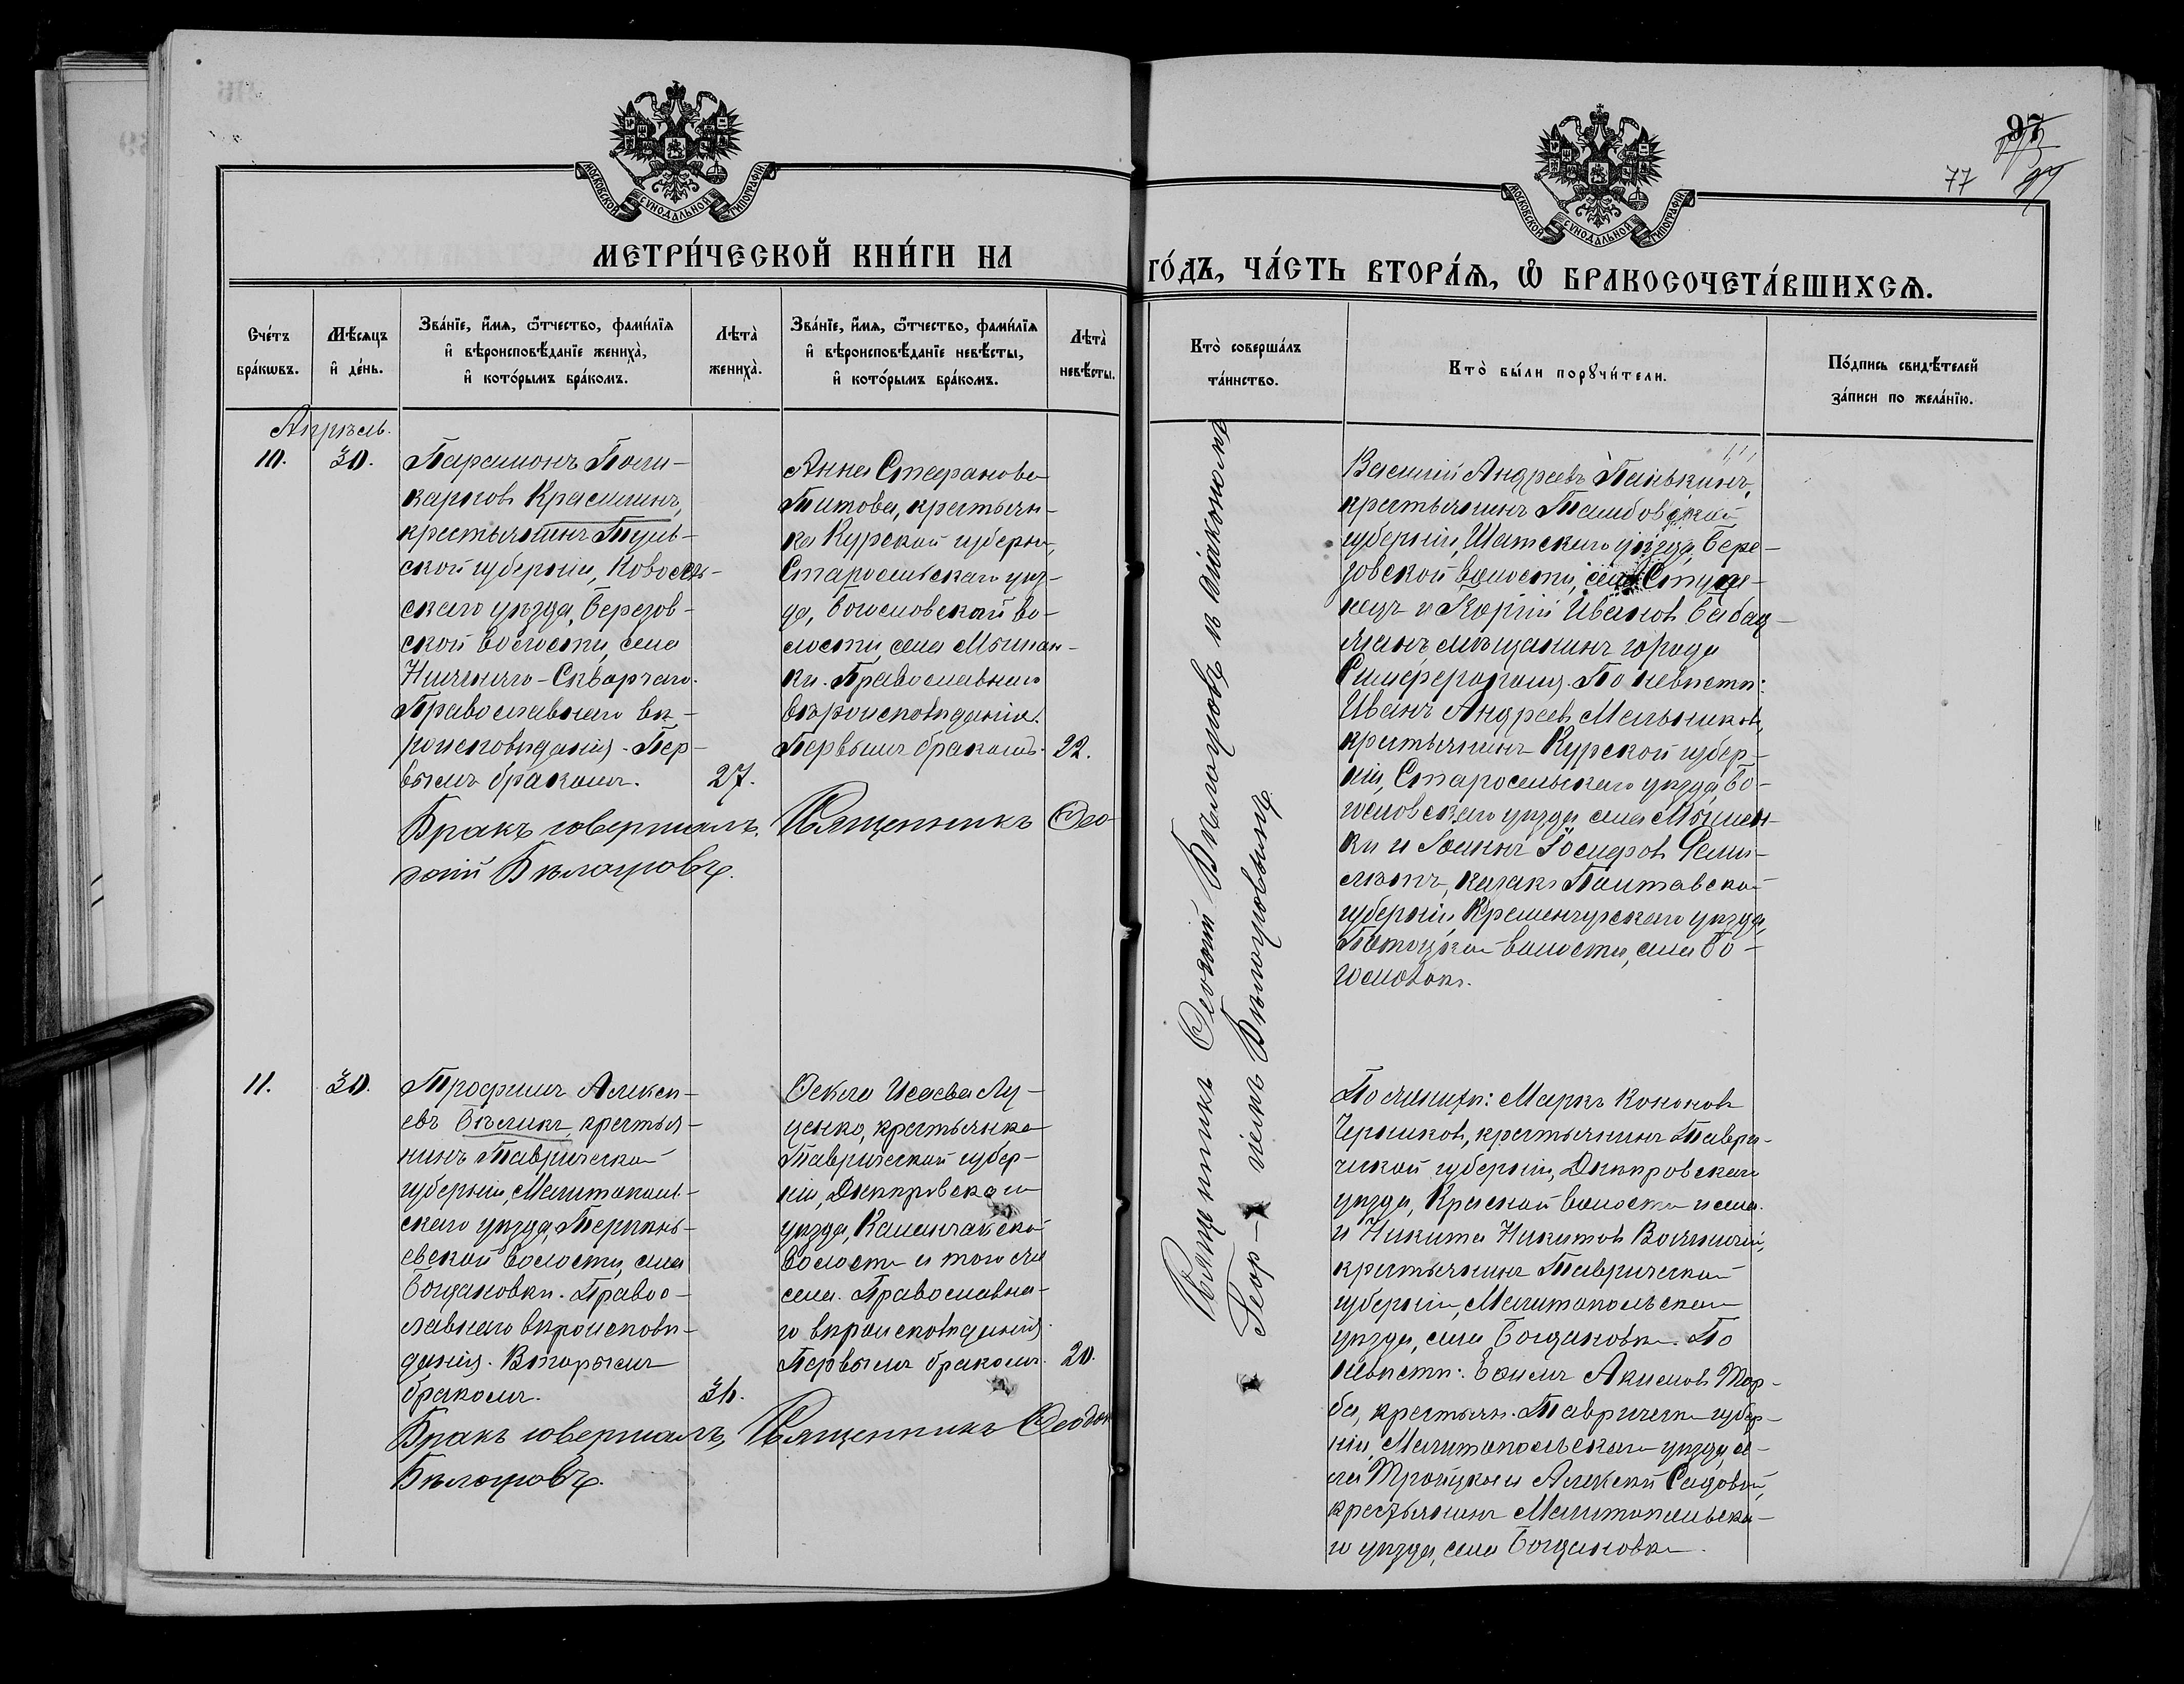 97
77
МОСКОВСКОЙ СѴНОДАЛЬНОЙ ТИПОГРАФІИ
МОСКОВСКОЙ СѴНОДАЛЬНОЙ ТИПОГРАФІИ
МЕТРИ́ЧЕСКОЙ КНИ́ГИ НА
ГО́ДЪ, ЧА́СТЬ ВТОРА́Ѧ, Ѽ БРАКОСОЧЕТА́ВШИХСѦ.
Сче́тъ
бра́кѡвъ.
Мѣ́сяцъ
и҆ де́нь.
Зва́нїе, и҆́мѧ, ѻ҆́тчество, фами́лїѧ
и҆ вѣроисповѣ́данїе жениха̀,
и҆ кото́рымъ бра́комъ.
Лѣта̀
жениха̀.
Зва́нїе, и҆́мѧ, ѻ҆́тчество, фами́лїѧ
и҆ вѣроисповѣ́данїе невѣ́сты,
и҆ кото́рымъ бра́комъ.
Лѣта̀
невѣ́сты.
Кто̀ соверша́лъ
та́инство.
Кто̀ бы́ли порꙋчи́тели.
По́дпись свидѣ́телей
за́писи по жела́нїю.
Апрѣль.
10.
30.
Парамонъ Поли-
карповъ Красилинъ,
крестьянинъ Туль-
ской губерніи, Новосель-
скаго уѣзда, Березов-
ской волости, села
Нижняго-Скворчаго.
Православнаго вѣ-
роисповѣданія. Пер-
вымъ бракомъ.
27.
Анна Стефанова
Титова, крестьян-
ка Курской губерніи,
Старосельскаго уѣз-
да, Богословской во-
лости, села Мышан-
ки. Православнаго
вѣроисповѣданія.
Первымъ бракомъ.
22.
Бракъ совершалъ, Священникъ Ѳео-
досій Бѣлоусовъ.
Священникъ Ѳеодосій Бѣлоусовъ съ діакономъ
Геор-гіемъ Бѣлоусовымъ.
Василій Андреевъ Панькинъ,
крестьянинъ Тамбовской
губерніи, Шатскаго уѣзда, Бере-
зовской волости, села
и Георгій Ивановъ
мѣщанинъ города
Симферополя. По невѣстѣ:
Иванъ Андреевъ Мельниковъ,
крестьянинъ Курской губер-
ніи, Старосельскаго уѣзда, Бо-
гословскаго уѣзда села Мышан-
ки и Іосифовъ
казакъ Полтавской
губерніи, Кременчугскаго уѣзда,
Потоцкой волости, села Бо-
11.
30.
Трофимъ Алексѣ-
евъ Бѣликъ, крестья-
нинъ Таврической
губерніи, Мелитополь-
скаго уѣзда, Терпѣнь-
евской волости, села
Богдановки. Право-
славнаго вѣроисповѣ-
данія. Вторымъ
бракомъ.
36.
Ѳекла Исаева Лу-
ценко, крестьянка
Таврической губер-
ніи, Днѣпровскаго
уѣзда, Каланчакской
волости и того же
села. Православна-
го вѣроисповѣданія.
Первымъ бракомъ.
20.
Бракъ совершалъ, Священникъ Ѳеодосій
Бѣлоусовъ.
По женихѣ: Маркъ Кононовъ
Черниковъ, крестьянинъ Таври-
ческой губерніи, Днѣпровскаго
уѣзда, Красной волости и села.
и Никита Никитовъ
крестьянинъ Таврической
губерніи, Мелитопольскаго
уѣзда, села Богдановки. По
невѣстѣ: Акимовъ
крестьян. Таврическ. губер-
ніи, Мелитопольскаго уѣзда, се-
ла Троицкаго и Алексѣй Садовый,
крестьянинъ Мелитопольска-
го уѣзда, села Богдановки.